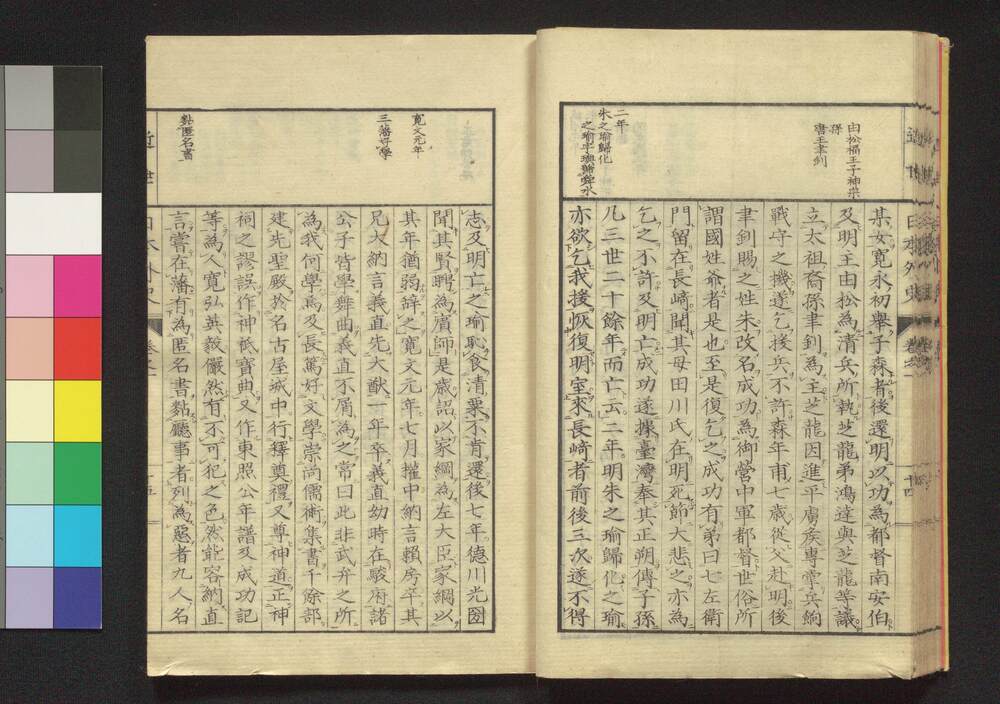 由松福王子神宗
孫
唐王聿釗
二年
朱之瑜歸化
之瑜字與輪舜水
某女寬永初舉子森者後還明以功為都督南安伯
及明主由松為清兵所執芝龍弟鴻逵與芝龍等議
立太祖裔孫聿釗為主芝龍因進平虜矦專掌兵餉
戰守之機遂乞援兵不許森年甫七歲從父赴明後
聿釗賜之姓朱改名成功為御營中軍都督世俗所
謂國姓爺者是也至是復乞之成功有弟曰七左衛
門留在長崎聞其母田川氏在明死節大悲之亦為
乞之不許及明亡成功遂據臺灣奉其正朔傳子孫
凡三世二十餘年而亡云二年明朱之瑜歸化之瑜
亦欲乞我援恢復明室來長崎者前後三次遂不得
近世
日本外史
卷之
十四
寬文元年
三藩好學
黏匿名書
志及明亡之瑜恥食清粟不肯還後七年德川光圀
聞其賢聘為賓師是歲詔以家綱為左大臣家綱以
其年猶弱辭之寬文元年七月權中納言賴房卒其
兄大納言義直先大猷一年卒義直幼時在駿府諸
公子皆學舞曲義直不屑為之常曰此非武弁之所
為我何學焉及長篤好文學崇尚儒術集書千餘部
建先聖殿於名古屋城中行釋奠禮又尊神道正神
祠之謬誤作神祇寶典又作東照公年譜及成功記
等為人寬弘英毅儼然有不可犯之色然能容納直
言嘗在藩有為匿名書黏廳事者列為惡者九人名
近世
日本外史
卷之
十五